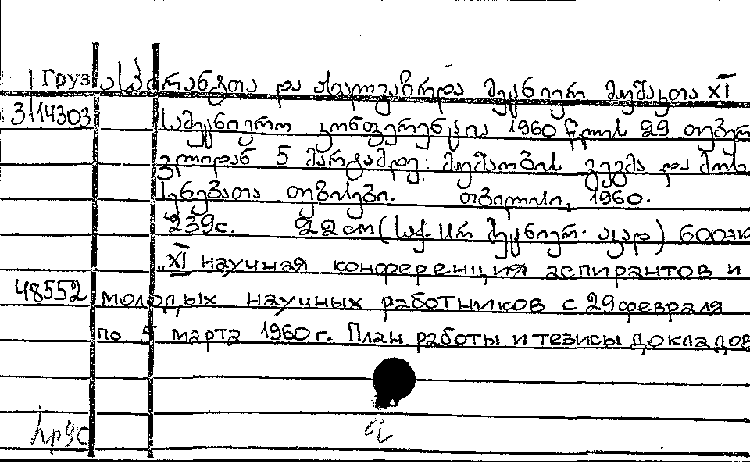 Груз ასპირანტთა და ახალგაზრდა მეცნიერ მუშაკთა XI
3/14303 სამეცნიერო კონფერენცია 1960 წლის 29 თებერ
ვლიდან 5 მარტამდე. მუშაობის გეგმა და მოხ
სენებათა თეზისები. თბილისი, 1960.
239с. 22 cm (საქ. სსრ მეცნიერ. აკად) 600экз
„XI научная конференция аспирантов и
48552 молодых научных работников с 29 февраля
по 5 марта 1960 г. План работы и тезисы докладов